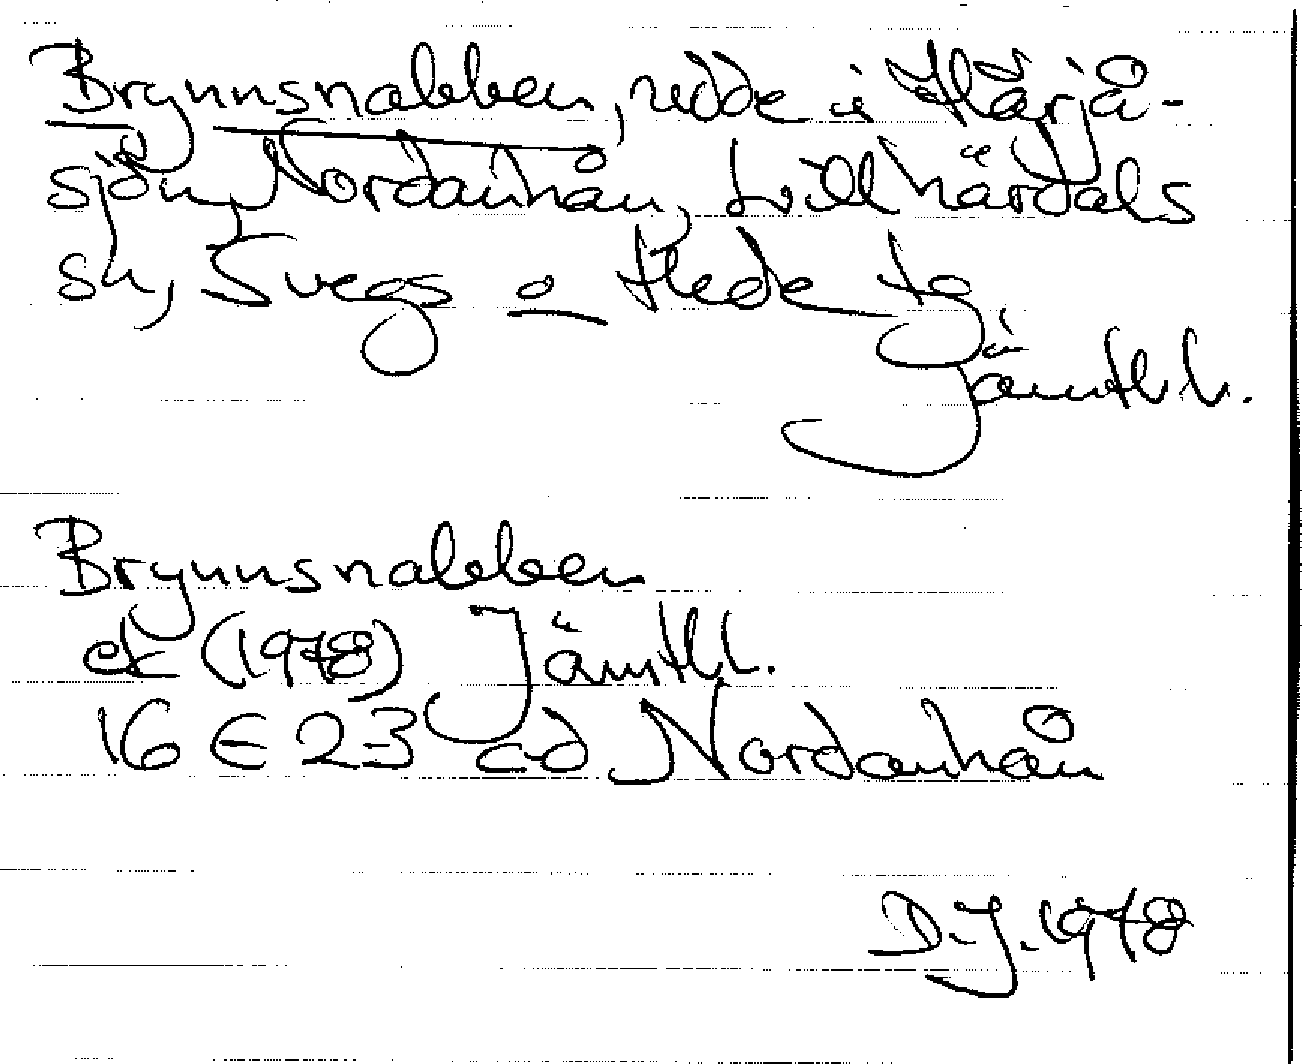 Brynnsnabben, udde i Härjå-
sjön, Nordanhån, Lillhärdals
sn, Svegs o Hede tg
Jämtl l.
Brynnsnabben
ek (1978) Jämtl l.
16 E 2-3 c-d Nordanhån
D.J. 1978